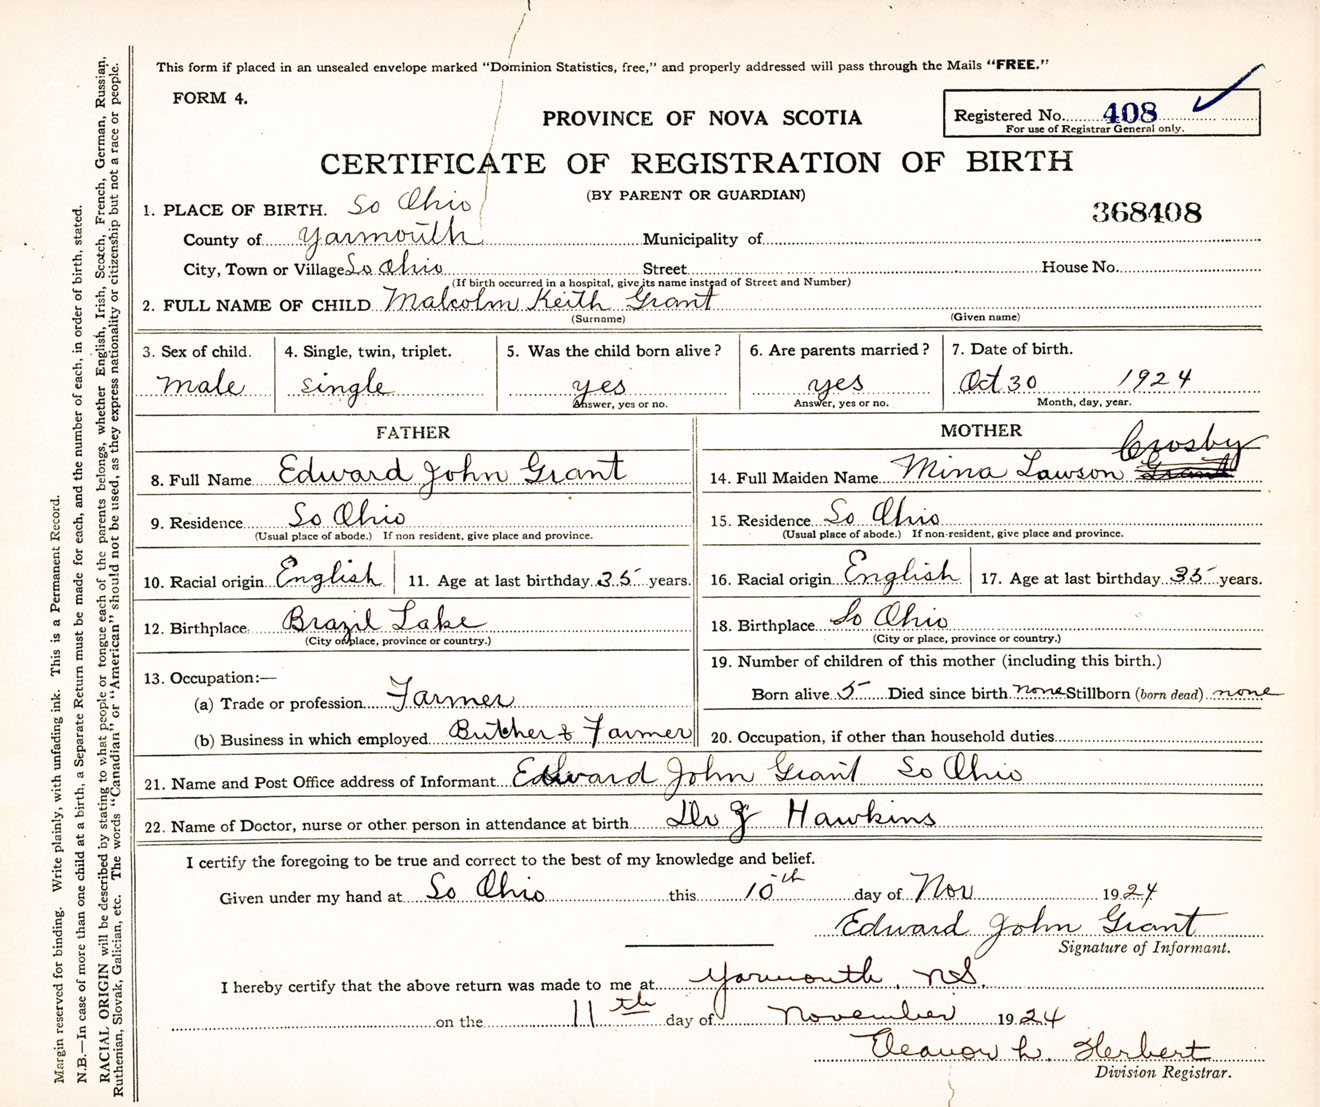 This form if placed in an unsealed envelope marked “Dominion Statistics, free,” and properly addressed will pass through the Mails “FREE.”
FORM 4.
PROVINCE OF NOVA SCOTIA
Registered No. 408
For use of Registrar General only.
CERTIFICATE OF REGISTRATION OF BIRTH
(BY PARENT OR GUARDIAN)
368408
1. PLACE OF BIRTH. So Ohio
County of Yarmouth Municipality of
City, Town or Village So Ohio Street House No.
(If birth occurred in a hospital, give its name instead of Street and Number)
2. FULL NAME OF CHILD Malcolm Keith Grant
(Surname) (Given name)
3. Sex of child. 4. Single, twin, triplet. 5. Was the child born alive? 6. Are parents married? 7. Date of birth.
male single yes yes Oct 30 1924
Answer, yes or no. Answer, yes or no. Month, day, year.
FATHER
8. Full Name Edward John Grant
9. Residence So Ohio
(Usual place of abode.) If non resident, give place and province.
10. Racial origin English 11. Age at last birthday 35 years.
12. Birthplace Brazil Lake
(City or place, province or country.)
13. Occupation:—
(a) Trade or profession Farmer
(b) Business in which employed Butcher & Farmer
MOTHER
Crosby
14. Full Maiden Name Mina Lawson Grant
15. Residence So Ohio
(Usual place of abode.) If non-resident, give place and province.
16. Racial origin English 17. Age at last birthday 35 years.
18. Birthplace So Ohio
(City or place, province or country.)
19. Number of children of this mother (including this birth.)
Born alive 5 Died since birth none Stillborn (born dead) none
20. Occupation, if other than household duties
21. Name and Post Office address of Informant Edward John Grant So Ohio
22. Name of Doctor, nurse or other person in attendance at birth Hawkins
I certify the foregoing to be true and correct to the best of my knowledge and belief.
Given under my hand at So Ohio this 10th day of Nov 1924
Edward John Grant
Signature of Informant.
I hereby certify that the above return was made to me at Yarmouth, N.S.
on the 11th day of November 1924
Eleanor L. Herbert
Division Registrar.
Margin reserved for binding. Write plainly, with unfading ink. This is a Permanent Record.
N.B.—In case of more than one child at a birth, a Separate Return must be made for each, and the number of each, in order of birth, stated.
RACIAL ORIGIN will be described by stating to what people or tongue each of the parents belongs, whether English, Irish, Scotch, French, German, Russian,
Ruthenian, Slovak, Galician, etc. The words “Canadian” or “American” should not be used, as they express nationality or citizenship but not a race or people.